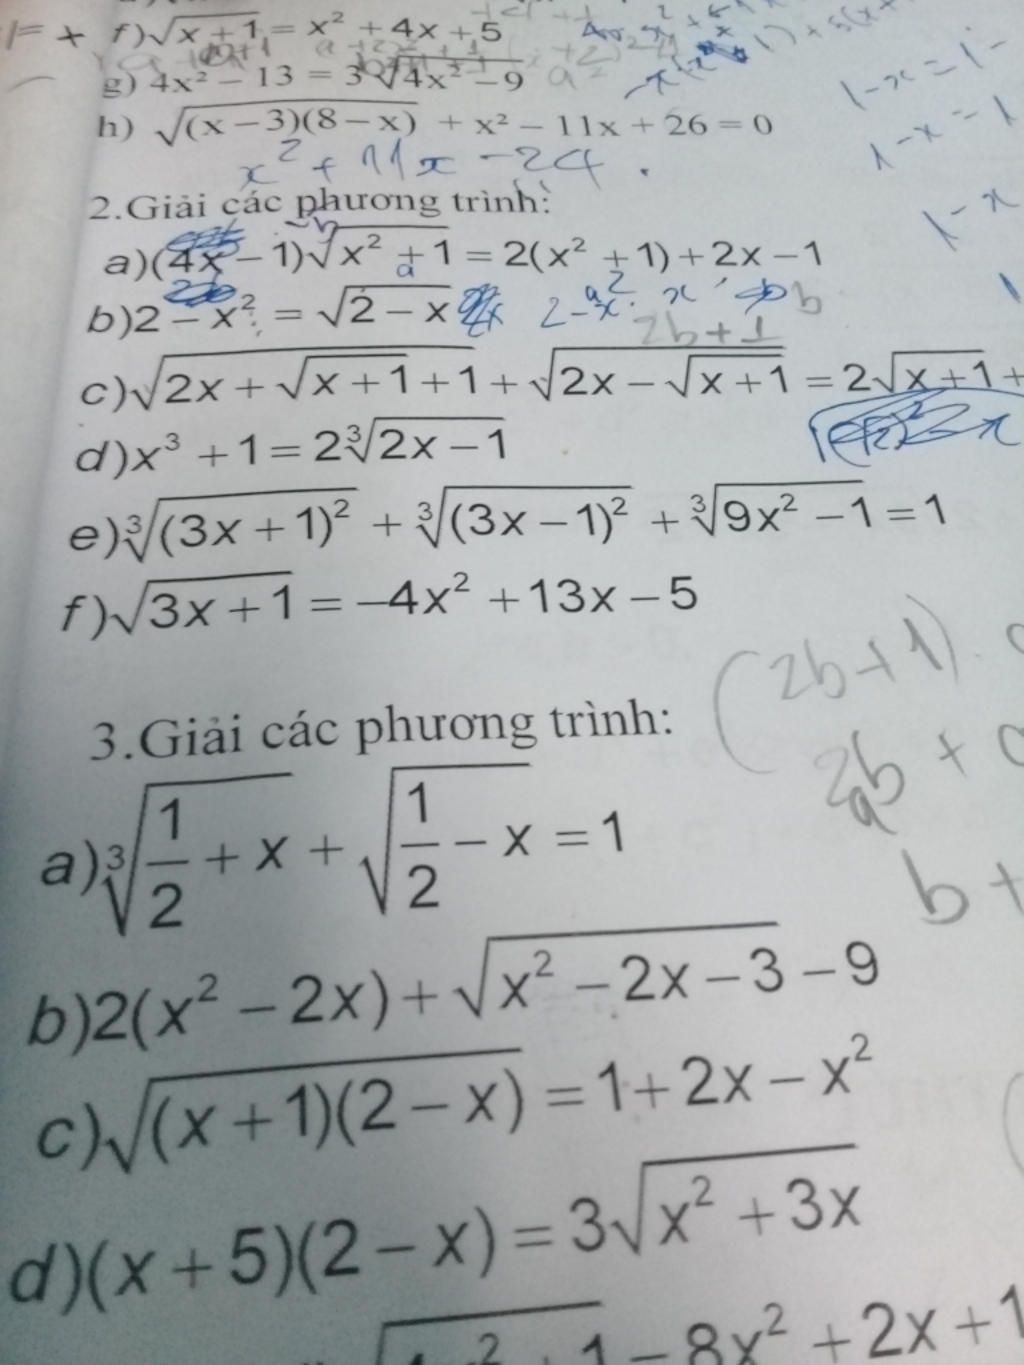 f) √(x + 1) = x² + 4x + 5
g) 4x² − 13 = 3√(4x² − 9)
h) √((x − 3)(8 − x)) + x² − 11x + 26 = 0
x² + 11x − 24 .
2.Giải các phương trình:
a)(4x − 1)√(x² + 1) = 2(x² + 1) + 2x − 1
b)2 − x² = √(2 − x)
2b + 1
c)√(2x + √(x + 1) + 1) + √(2x − √(x + 1)) = 2√(x + 1) +
d)x³ + 1 = 2∛(2x − 1)
e)∛((3x + 1)²) + ∛((3x − 1)²) + ∛(9x² − 1) = 1
f)√(3x + 1) = −4x² + 13x − 5
(2b + 1)
2b +
a
b +
3.Giải các phương trình:
a)∛(1/2 + x) + √(1/2 − x) = 1
b)2(x² − 2x) + √(x² − 2x − 3) − 9
c)√((x + 1)(2 − x)) = 1 + 2x − x²
d)(x + 5)(2 − x) = 3√(x² + 3x)
1 − 8x² + 2x + 1
1 − x = 1 −
1 − x = 1
1 − x